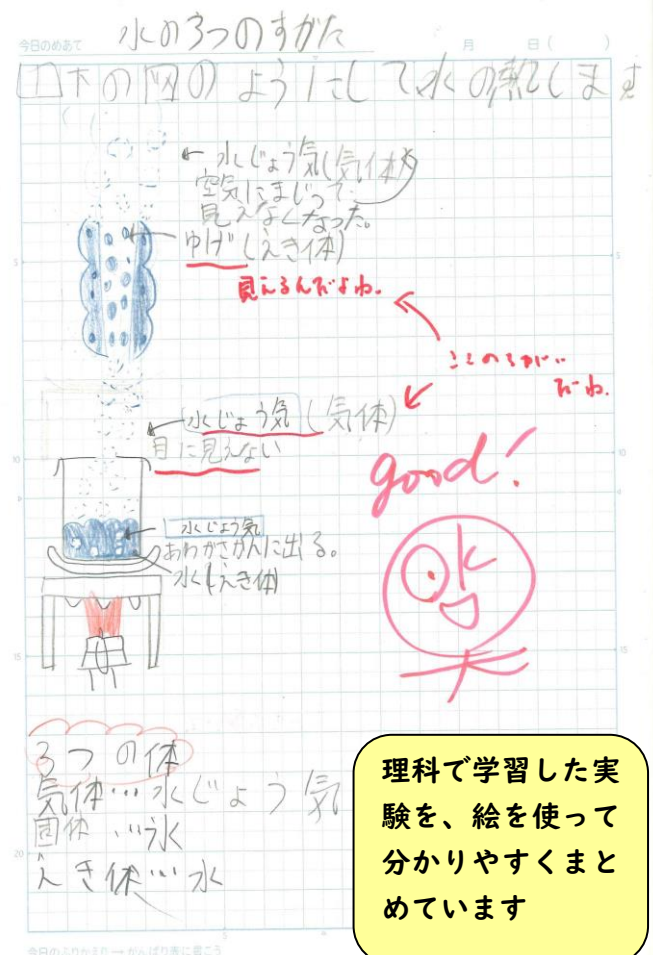 今日のめあて 水の3つのすがた 月 日( )
下の図のようにして水の熱します
水じょう気(気体)
空気にまじって
見えなくなった。
ゆげ(えき体)
見えるんだよね。
ここのちがい
だね。
水じょう気(気体)
目に見えない
good!
水じょう気
あわがさかんに出る。
水(えき体)
3つの体
気体…水じょう気
固体…氷
えき体…水
理科で学習した実
験を、絵を使って
分かりやすくまと
めています
今日のふりかえり→がんばり表に書こう